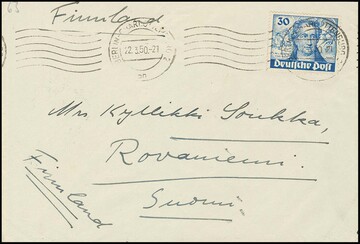 63
Finnland
22.3.50.-21
30
Deutsche Post
Mrs Kyllikki Soukka,
Rovaniemi.
Suomi.
Finnland